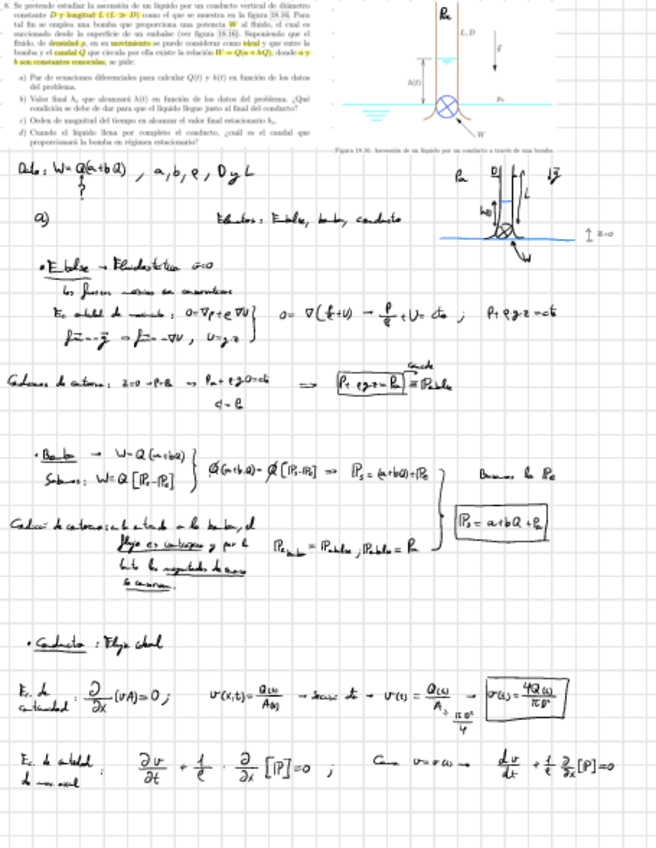 8. Se pretende estudiar la ascensión de un líquido por un conducto vertical de diámetro
constante D y longitud L (L ≫ D) como el que se muestra en la figura 18.16. Para
tal fin se emplea una bomba que proporciona una potencia W al fluido, el cual es
succionado desde la superficie de un embalse (ver figura 18.16). Suponiendo que el
fluido, de densidad ρ, en su movimiento se puede considerar como ideal y que entre la
bomba y el caudal Q que circula por ella existe la relación W = Q(a + bQ), donde a y
b son constantes conocidas, se pide:
a) Par de ecuaciones diferenciales para calcular Q(t) y h(t) en función de los datos
del problema.
b) Valor final hₛ que alcanzará h(t) en función de los datos del problema. ¿Qué
condición se debe de dar para que el líquido llegue justo al final del conducto?
c) Orden de magnitud del tiempo en alcanzar el valor final estacionario hₛ.
d) Cuando el líquido llena por completo el conducto, ¿cuál es el caudal que
proporcionará la bomba en régimen estacionario?
Pa
L, D
g
h(t)
Pa
W
Figura 18.16: Ascensión de un líquido por un conducto a través de una bomba.
Datos: W=Q(a+bQ) , a, b, ρ, D y L
?
Pa D g
L
h(t)
z=0
W
a) Elementos: Embalse, bomba, conducto
• Embalse → Fluidostática ū=0
Ec. cantidad de movimiento: 0=∇p+ρ∇U } 0= ∇(p/ρ+U) → p/ρ+U= cte ; P+ρgz=cte
fm=-g → fm=-∇U , U=gz
Condiciones de contorno: z=0→P=Pa → Pa+ρg0=cte ⇒ P+ρgz=Pa ≡ Pembalse
cte=Pa
• Bomba → W=Q(a+bQ)
Sabemos: W=Q[Ps-Pe] } Q(a+bQ)=Q[Ps-Pe] ⇒ Ps=(a+bQ)+Pe Buscamos la Pe
Condición de contorno: a la entrada a la bomba, el
flujo es isentrópico y por lo Pe bomba = Pembalse ; Pembalse = Pa Ps = a+bQ+Pa
tanto las magnitudes de
se conservan.
• Conducto: Flujo ideal
Ec. de
continuidad: ∂/∂x (vA)=0 ; v(x,t)=Q(t)/A(x) → sección cte → v(t)=Q(t)/A → v(t)=4Q(t)/πD²
πD²/4
Ec. de cantidad
de mov : ∂v/∂t + 1/ρ · ∂/∂x [P]=0 ; Como v=v(t) → dv/dt + 1/ρ ∂/∂x [P]=0